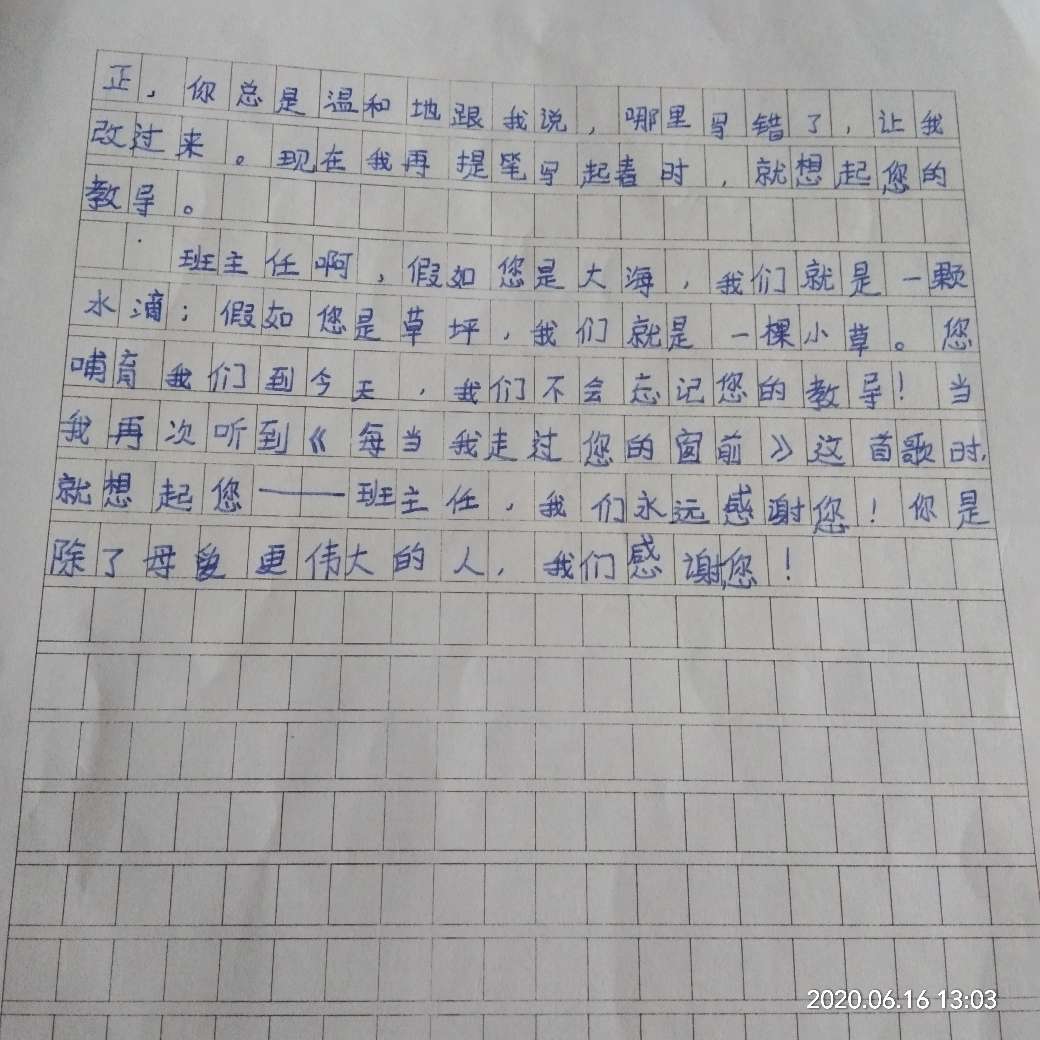 正，你总是温和地跟我说，哪里写错了，让我
改过来。现在我再提笔写起着时，就想起您的
教导。
班主任啊，假如您是大海，我们就是一颗
水滴；假如您是草坪，我们就是一棵小草。您
哺育我们到今天，我们不会忘记您的教导！当
我再次听到《每当我走过您的窗前》这首歌时，
就想起您——班主任，我们永远感谢您！你是
除了母爱更伟大的人，我们感谢您！
2020.06.16 13:03